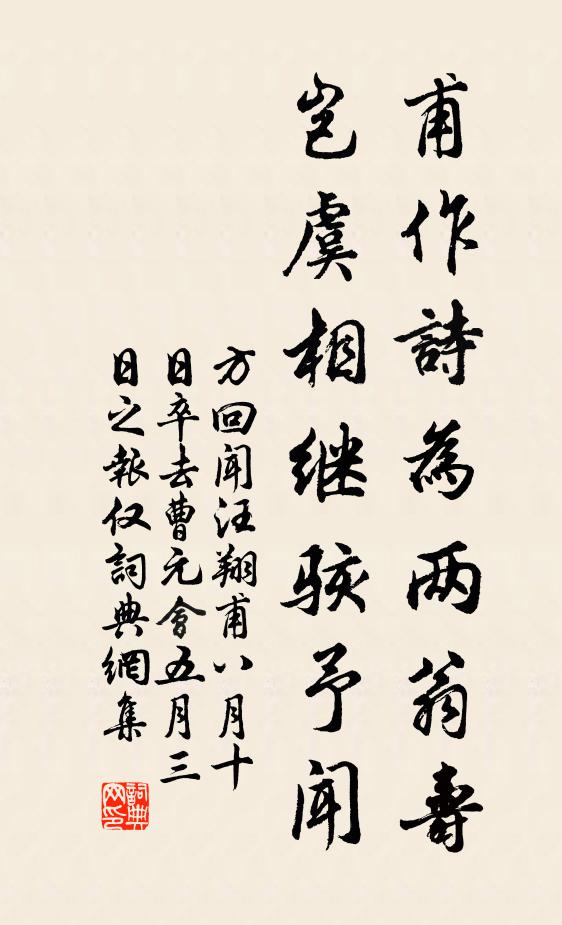 甫作詩為两翁壽
豈虞相継駭予聞
方回聞汪翔甫八月十
日卒去曹元會五月三
日之報仅詞典網集
詞典
网印